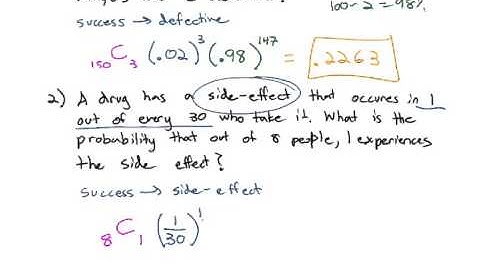 100 - 2 = 98%
success → defective
₁₅₀C₃ (.02)³ (.98)¹⁴⁷ = .2263
2) A drug has a side-effect that occures in 1
out of every 30 who take it. What is the
probability that out of 8 people, 1 experiences
the side effect?
success → side-effect
₈C₁ (1/30)¹